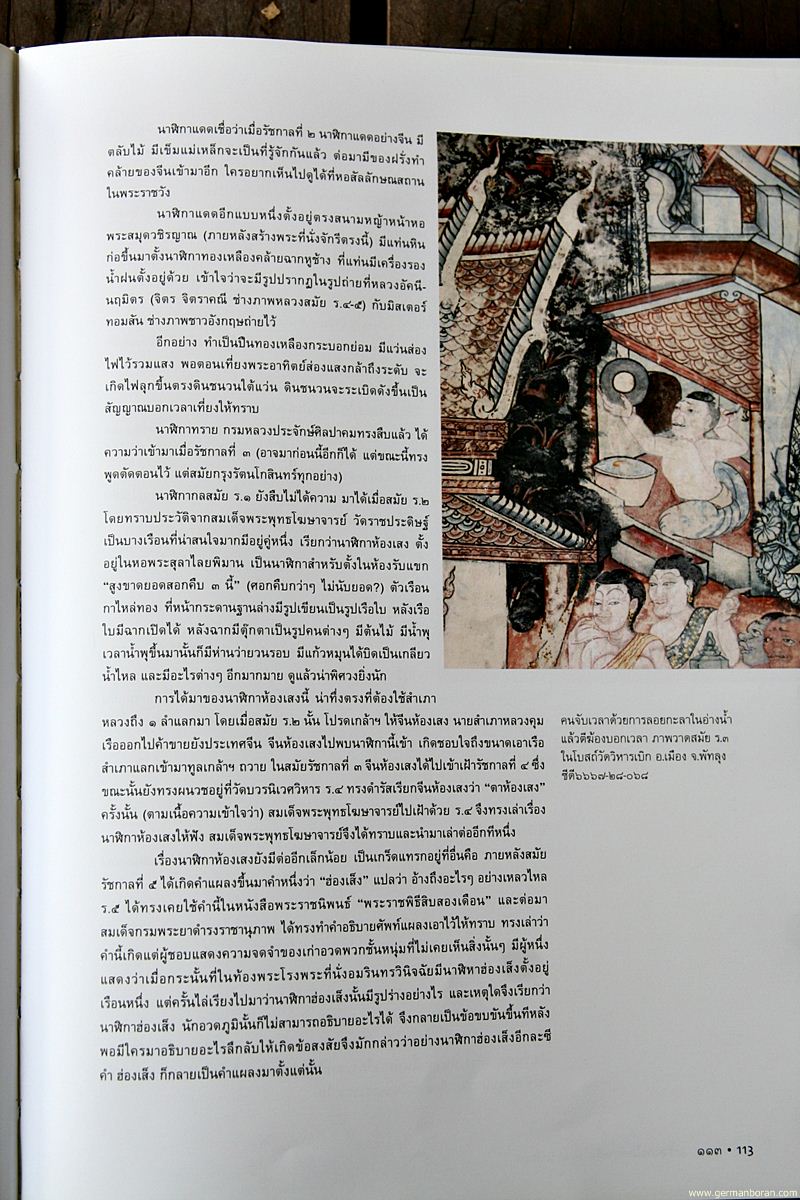 นาฬิกาแดดเชื่อว่าเมื่อรัชกาลที่ ๒ นาฬิกาแดดอย่างจีน มี
ตลับไม้ มีเข็มแม่เหล็กจะเป็นที่รู้จักกันแล้ว ต่อมามีของฝรั่งทำ
คล้ายของจีนเข้ามาอีก ใครอยากเห็นไปดูได้ที่หอสัลลักษณสถาน
ในพระราชวัง
นาฬิกาแดดอีกแบบหนึ่งตั้งอยู่ตรงสนามหญ้าหน้าหอ
พระสมุดวชิรญาณ (ภายหลังสร้างพระที่นั่งจักรีตรงนี้) มีแท่นหิน
ก่อขึ้นมาตั้งนาฬิกาทองเหลืองคล้ายฉากหูช้าง ที่แท่นมีเครื่องรอง
น้ำฝนตั้งอยู่ด้วย เข้าใจว่าจะมีรูปปรากฏในรูปถ่ายที่หลวงอัคนี-
นฤมิตร (จิตร จิตราคณี ช่างภาพหลวงสมัย ร.๔-๕) กับมิสเตอร์
ทอมสัน ช่างภาพชาวอังกฤษถ่ายไว้
อีกอย่าง ทำเป็นปืนทองเหลืองกระบอกย่อม มีแว่นส่อง
ไฟไว้รวมแสง พอตอนเที่ยงพระอาทิตย์ส่องแสงกล้าถึงระดับ จะ
เกิดไฟลุกขึ้นตรงดินชนวนใต้แว่น ดินชนวนจะระเบิดดังขึ้นเป็น
สัญญาณบอกเวลาเที่ยงให้ทราบ
นาฬิกาทราย กรมหลวงประจักษ์ศิลปาคมทรงสืบแล้ว ได้
ความว่าเข้ามาเมื่อรัชกาลที่ ๓ (อาจมาก่อนนี้อีกก็ได้ แต่ขณะนี้ทรง
พูดตัดตอนไว้ แต่สมัยกรุงรัตนโกสินทร์ทุกอย่าง)
นาฬิกากลสมัย ร.๑ ยังสืบไม่ได้ความ มาได้เมื่อสมัย ร.๒
โดยทราบประวัติจากสมเด็จพระพุทธโฆษาจารย์ วัดราชประดิษฐ์
เป็นบางเรือนที่น่าสนใจมากมีอยู่คู่หนึ่ง เรียกว่านาฬิกาห้องเสง ตั้ง
อยู่ในหอพระสุลาไลยพิมาน เป็นนาฬิกาสำหรับตั้งในห้องรับแขก
“สูงขาดยอดสอกคืบ ๓ นี้” (ศอกคืบกว่าๆ ไม่นับยอด?) ตัวเรือน
กาไหล่ทอง ที่หน้ากระดานฐานล่างมีรูปเขียนเป็นรูปเรือใบ หลังเรือ
ใบมีฉากเปิดได้ หลังฉากมีตุ๊กตาเป็นรูปคนต่างๆ มีต้นไม้ มีน้ำพุ
เวลาน้ำพุขึ้นมานั้นก็มีห่านว่ายวนรอบ มีแก้วหมุนได้บิดเป็นเกลียว
น้ำไหล และมีอะไรต่างๆ อีกมากมาย ดูแล้วน่าพิศวงยิ่งนัก
การได้มาของนาฬิกาห้องเสงนี้ น่าทึ่งตรงที่ต้องใช้สำเภา
หลวงถึง ๑ ลำแลกมา โดยเมื่อสมัย ร.๒ นั้น โปรดเกล้าฯ ให้จีนห้องเสง นายสำเภาหลวงคุม
เรือออกไปค้าขายยังประเทศจีน จีนห้องเสงไปพบนาฬิกานี้เข้า เกิดชอบใจถึงขนาดเอาเรือ
สำเภาแลกเข้ามาทูลเกล้าฯ ถวาย ในสมัยรัชกาลที่ ๓ จีนห้องเสงได้ไปเข้าเฝ้ารัชกาลที่ ๔ ซึ่ง
ขณะนั้นยังทรงผนวชอยู่ที่วัดบวรนิเวศวิหาร ร.๔ ทรงดำรัสเรียกจีนห้องเสงว่า “ตาห้องเสง”
ครั้งนั้น (ตามเนื้อความเข้าใจว่า) สมเด็จพระพุทธโฆษาจารย์ไปเฝ้าด้วย ร.๔ จึงทรงเล่าเรื่อง
นาฬิกาห้องเสงให้ฟัง สมเด็จพระพุทธโฆษาจารย์จึงได้ทราบและนำมาเล่าต่ออีกทีหนึ่ง
เรื่องนาฬิกาห้องเสงยังมีต่ออีกเล็กน้อย เป็นเกร็ดแทรกอยู่ที่อื่นคือ ภายหลังสมัย
รัชกาลที่ ๕ ได้เกิดคำแผลงขึ้นมาคำหนึ่งว่า “ฮ่องเส็ง” แปลว่า อ้างถึงอะไรๆ อย่างเหลวไหล
ร.๕ ได้ทรงเคยใช้คำนี้ในหนังสือพระราชนิพนธ์ “พระราชพิธีสิบสองเดือน” และต่อมา
สมเด็จกรมพระยาดำรงราชานุภาพ ได้ทรงทำคำอธิบายศัพท์แผลงเอาไว้ให้ทราบ ทรงเล่าว่า
คำนี้เกิดแต่ผู้ชอบแสดงความจดจำของเก่าอวดพวกชั้นหนุ่มที่ไม่เคยเห็นสิ่งนั้นๆ มีผู้หนึ่ง
แสดงว่าเมื่อกระนั้นที่ในท้องพระโรงพระที่นั่งอมรินทรวินิจฉัยมีนาฬิหาฮ่องเส็งตั้งอยู่
เรือนหนึ่ง แต่ครั้นไล่เรียงไปมาว่านาฬิกาฮ่องเส็งนั้นมีรูปร่างอย่างไร และเหตุใดจึงเรียกว่า
นาฬิกาฮ่องเส็ง นักอวดภูมินั้นก็ไม่สามารถอธิบายอะไรได้ จึงกลายเป็นข้อขบขันขึ้นทีหลัง
พอมีใครมาอธิบายอะไรลึกลับให้เกิดข้อสงสัยจึงมักกล่าวว่าอย่างนาฬิกาฮ่องเส็งอีกละซี
คำ ฮ่องเส็ง ก็กลายเป็นคำแผลงมาตั้งแต่นั้น
คนจับเวลาด้วยการลอยกะลาในอ่างน้ำ
แล้วตีฆ้องบอกเวลา ภาพวาดสมัย ร.๓
ในโบสถ์วัดวิหารเบิก อ.เมือง จ.พัทลุง
ซีดี๖๖๖๗-๒๘-๐๖๘
๑๑๓ • 113
www.germanboran.com